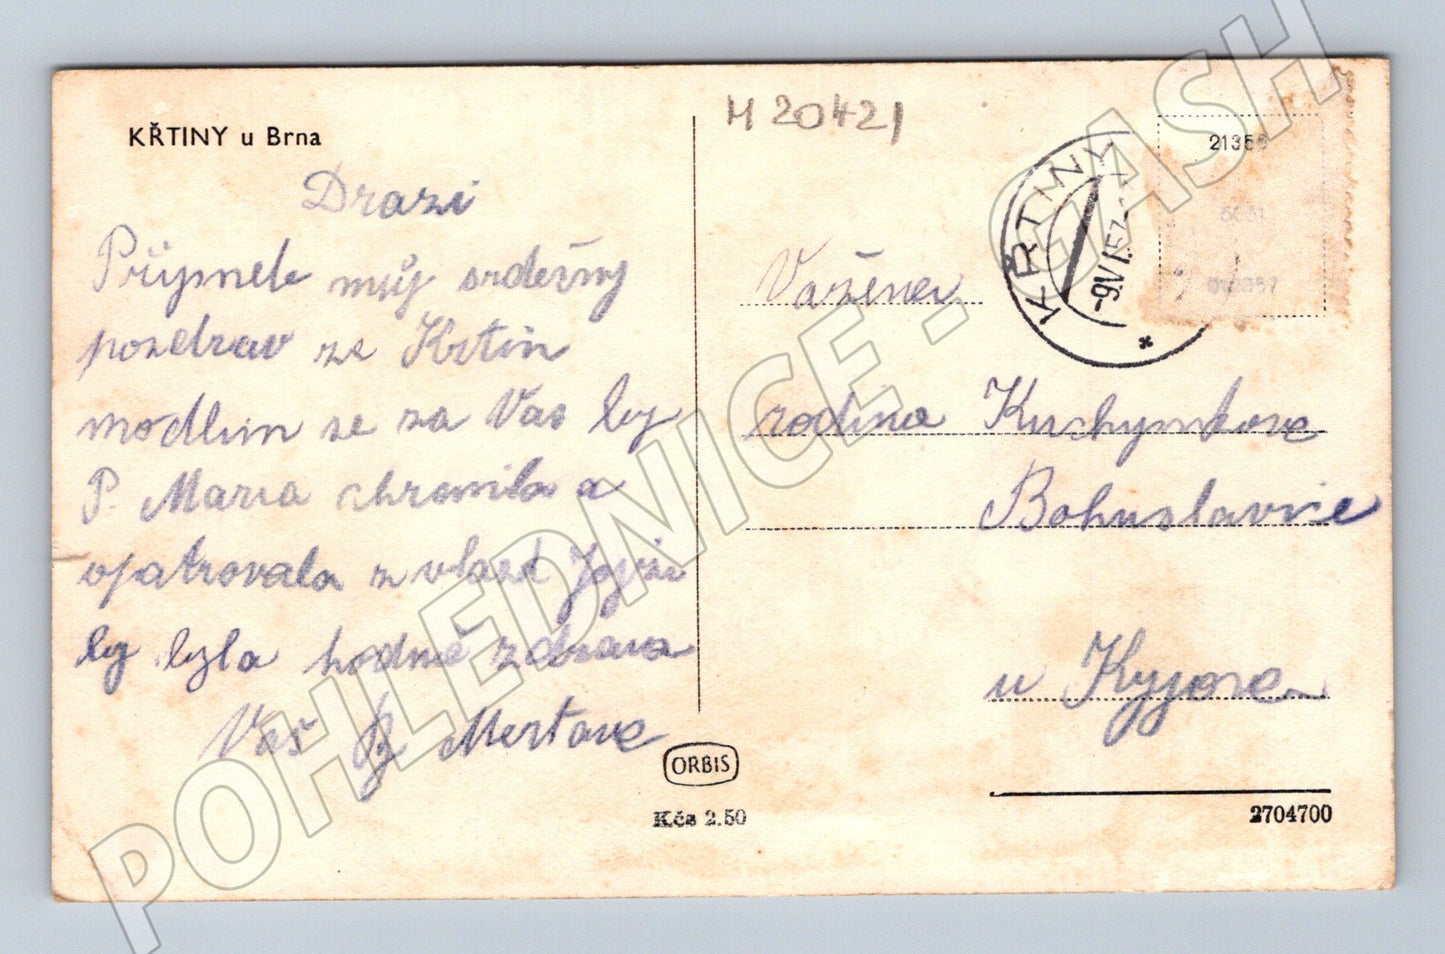 KŘTINY u Brna
Drazí
Přijmete můj srdečný
pozdrav ze Křtin
modlim se za Vas by
P. Maria chranila a
opatrovala z vlašt
by byla hodně zdrava
Vaš Mertova
ORBIS
Kčs 2.50
M 20421
KŘTINY
-9.VI.57.-
21356
Važena
rodina Kuchyňkova
Bohuslavice
u Kyjova
2704700
POHLEDNICE - CASH